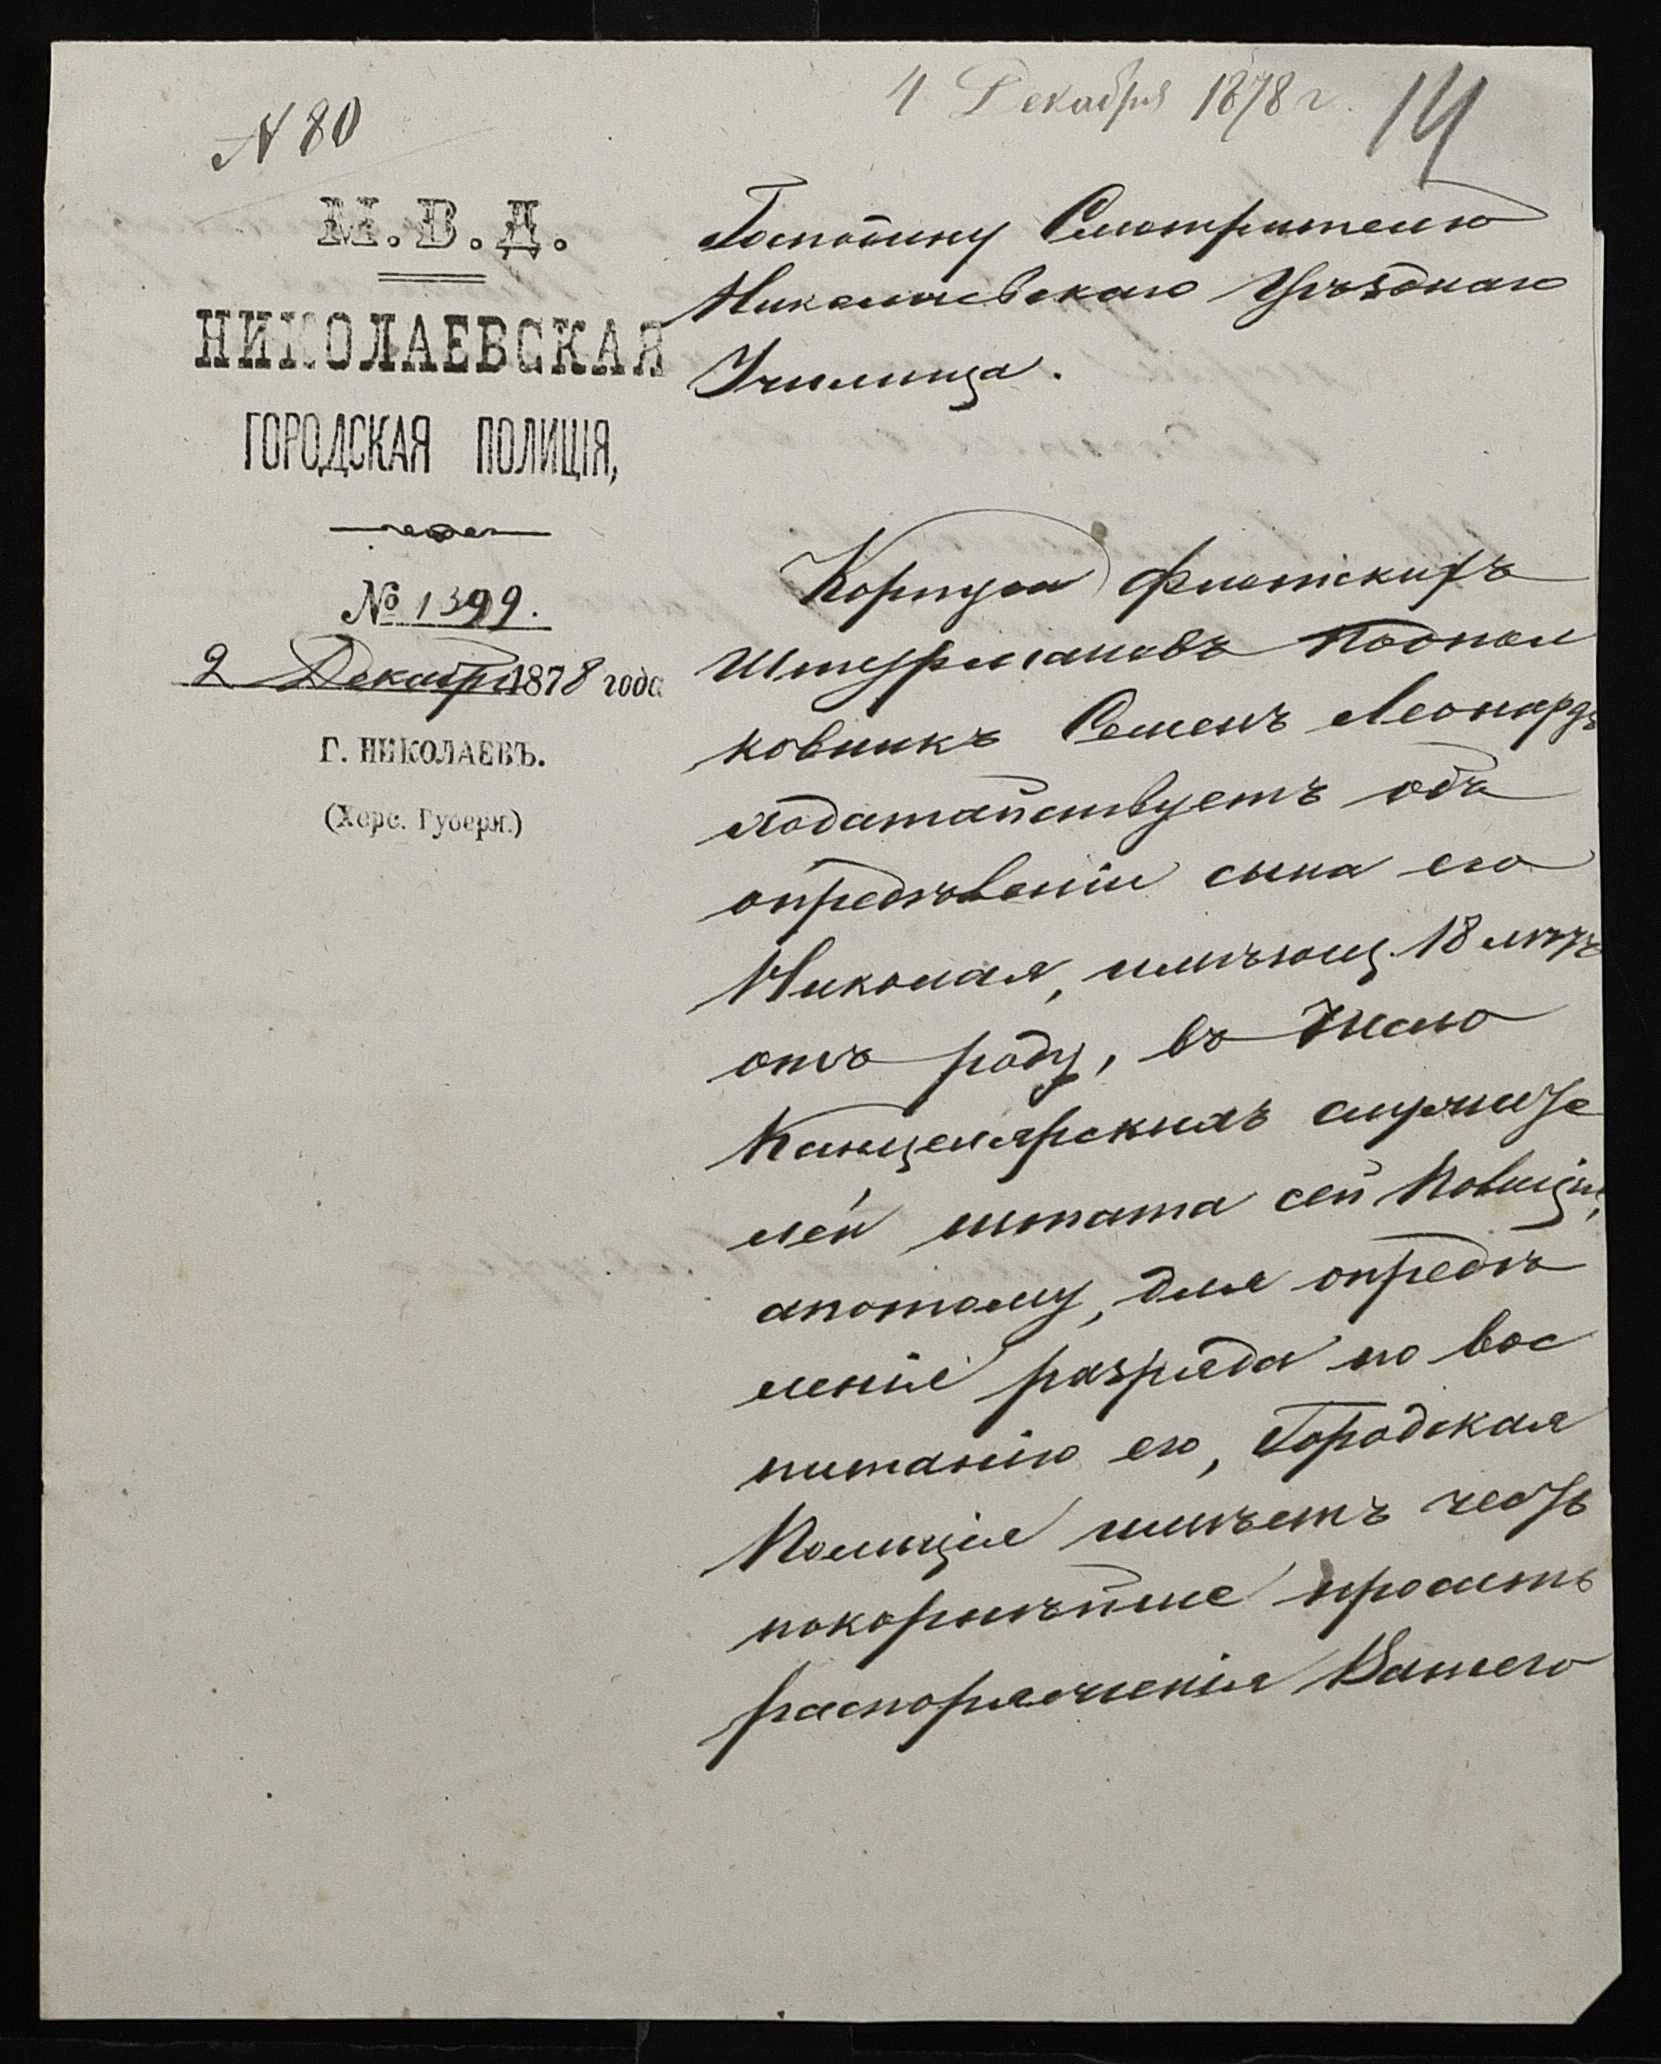 4 Декабря 1878 г.
14
N 80
М.В.Д.
НИКОЛАЕВСКАЯ
ГОРОДСКАЯ ПОЛИЦІЯ,
№ 1399.
2 Декабря 1878 года
Г. НИКОЛАЕВЪ.
(Херс. Губерн.)
Господину Смотрителю
Николаевскаго Уѣзднаго
Училища.
Корпуса Флотскихъ
Штурмановъ Подпол
ковникъ Семенъ Леонардъ
ходатайствуетъ объ
опредѣленіи сына его
Николая, имѣющ. 18 лѣтъ
отъ роду, въ число
Канцелярскихъ служите
лей штата сей Полиціи,
апотому, для опредѣ
ленія разряда по вос
питанію его, Городская
Полиція имѣетъ честь
покорнѣйше просить
распоряженія Вашего